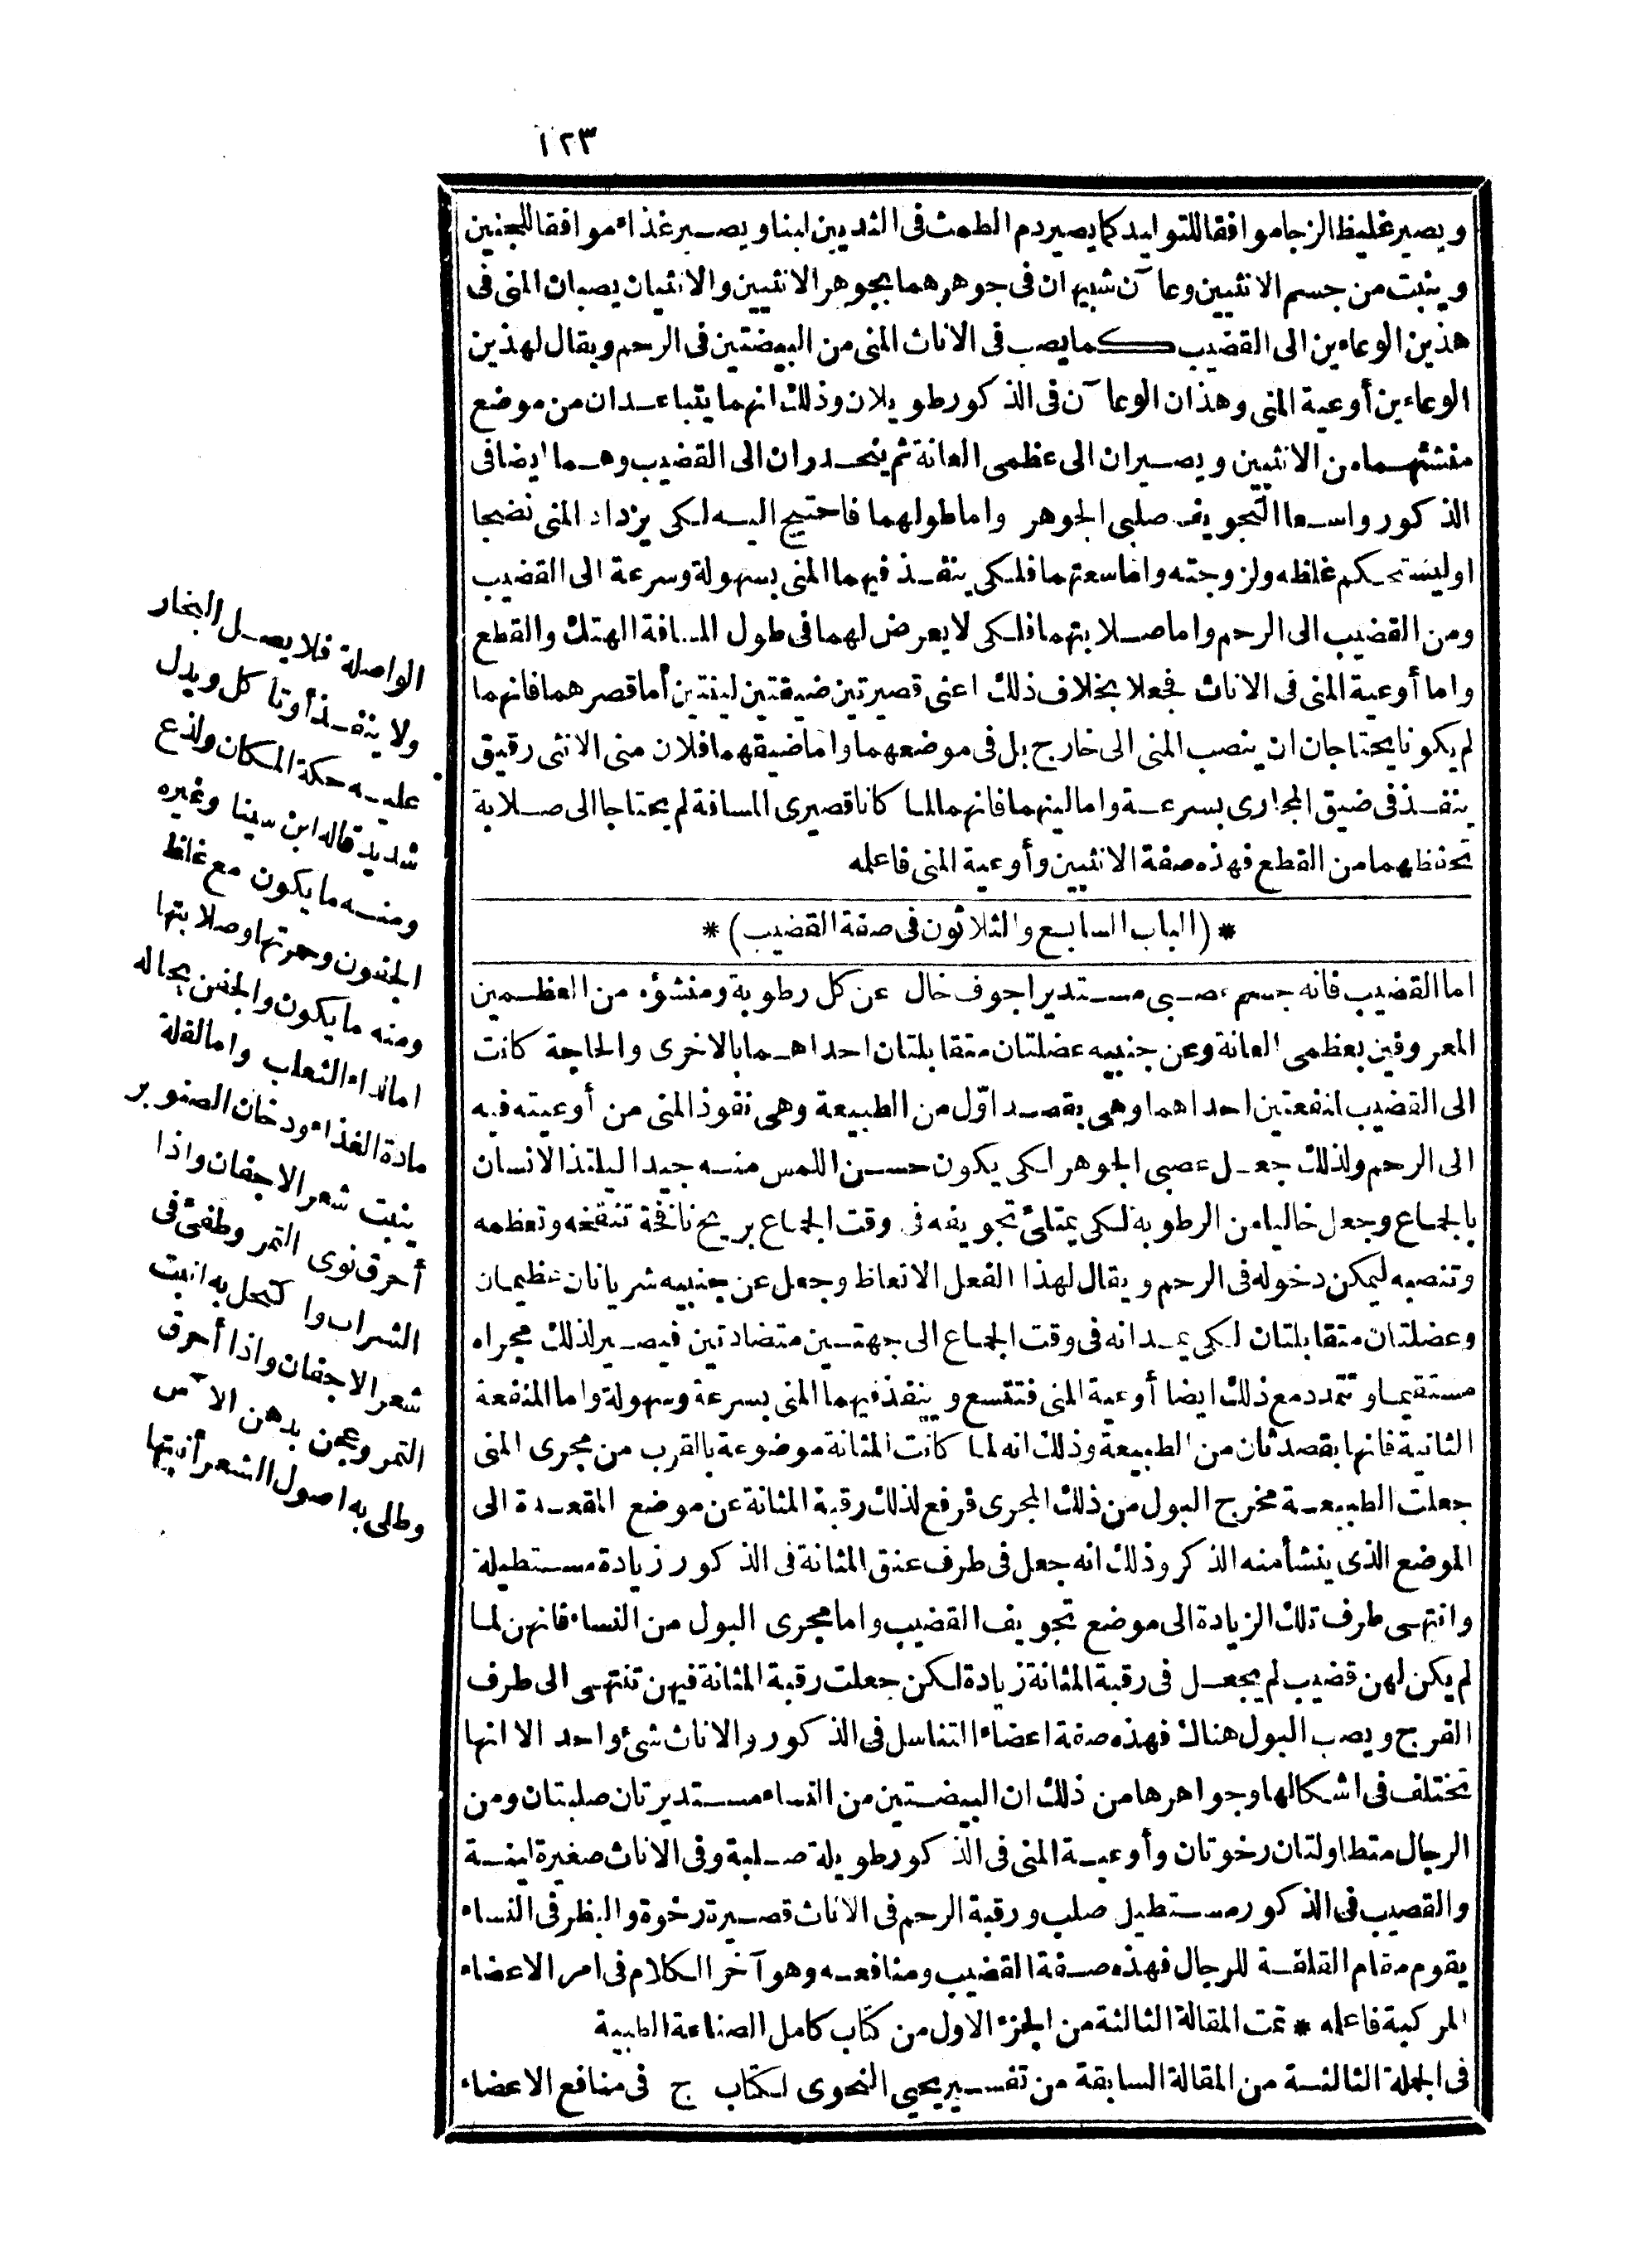 ١٢٣
ويصير غليظا لزجا موافقا للتوليد كما يصير دم الطمث فى الثديين لبنا ويصير غذاء موافقا للجنين
وينبت من جسم الانثيين وعاآن شبيهان فى جوهرهما بجوهر الانثيين والانثيان يصبان المنى فى
هذين الوعاءين الى القضيب كما يصب فى الاناث المنى من البيضتين فى الرحم ويقال لهذين
الوعاءين أوعية المنى وهذان الوعاآن فى الذكور طويلان وذلك انهما يتباعدان من موضع
منشئهما من الانثيين ويصيران الى عظمى العانة ثم ينحدران الى القضيب وهما ايضا فى
الذكور واسعا التجويف صلبى الجوهر واما طولهما فاحتيج اليه لكى يزداد المنى نضجا
اوليستحكم غلظه ولزوجته واما سعتهما فلكى ينفذ فيهما المنى بسهولة وسرعة الى القضيب
ومن القضيب الى الرحم واما صلابتهما فلكى لا يعرض لهما فى طول المسافة الهتك والقطع
واما أوعية المنى فى الاناث فجعلا بخلاف ذلك اعنى قصيرتين ضيقتين لينتين أما قصرهما فانهما
لم يكونا يحتاجان ان ينصب المنى الى خارج بل فى موضعهما واما ضيقهما فلان منى الانثى رقيق
ينفذ فى ضيق المجارى بسرعة واما لينهما فانهما لما كانا قصيرى المسافة لم يحتاجا الى صلابة
تحفظهما من القطع فهذه صفة الانثيين وأوعية المنى فاعلمه
* (الباب السابع والثلاثون فى صفة القضيب) *
اما القضيب فانه جسم عصبى مستدير اجوف خال عن كل رطوبة ومنشؤه من العظمين
المعروفين بعظمى العانة وعن جنبيه عضلتان متقابلتان احداهما بالاخرى والحاجة كانت
الى القضيب لنفعتين احداهما وهى بقصد اوّل من الطبيعة وهى نفوذ المنى من أوعيته فيه
الى الرحم ولذلك جعل عصبى الجوهر لكى يكون حسن اللمس منه جيدا ليلتذ الانسان
بالجماع وجعل خاليا من الرطوبة لكى يمتلئ تجويفه فى وقت الجماع بريح نافخة تنفخه وتعظمه
وتنصبه ليمكن دخوله فى الرحم ويقال لهذا الفعل الانعاظ وجعل عن جنبيه شريانان عظيمان
وعضلتان متقابلتان لكى يمدانه فى وقت الجماع الى جهتين متضادتين فيصير لذلك مجراه
مستقيما وتتمدد مع ذلك ايضا أوعية المنى فتتسع وينفذ فيهما المنى بسرعة وسهولة واما المنفعة
الثانية فانها بقصد ثان من الطبيعة وذلك انه لما كانت المثانة موضوعة بالقرب من مجرى المنى
جعلت الطبيعة مخرج البول من ذلك المجرى فرفع لذلك رقبة المثانة عن موضع المقعدة الى
الموضع الذى ينشأ منه الذكر وذلك انه جعل فى طرف عنق المثانة فى الذكور زيادة مستطيلة
وانتهى طرف تلك الزيادة الى موضع تجويف القضيب واما مجرى البول من النساء فانهن لما
لم يكن لهن قضيب لم يجعل فى رقبة المثانة زيادة لكن جعلت رقبة المثانة فيهن تنتهى الى طرف
الفرج ويصب البول هناك فهذه صفة اعضاء التناسل فى الذكور والاناث شئ واحد الا انها
تختلف فى اشكالها وجواهرها من ذلك ان البيضتين من النساء مستديرتان صلبتان ومن
الرجال متطاولتان رخوتان وأوعية المنى فى الذكور طويلة صلبة وفى الاناث صغيرة لينة
والقضيب فى الذكور مستطيل صلب ورقبة الرحم فى الاناث قصيرة رخوة والبظر فى النساء
يقوم مقام القلفة للرجال فهذه صفة القضيب ومنافعه وهو آخر الكلام فى امر الاعضاء
المركبة فاعلمه * تمت المقالة الثالثة من الجزء الاول من كتاب كامل الصناعة الطبية
فى الجملة الثالثة من المقالة السابقة من تفسير يحيى النحوى لكتاب ج فى منافع الاعضاء
الواصلة فلا يصل البخار
ولا ينفذ أوتاكل ويدل
عليه حكة المكان ولذع
شديد قاله ابن سينا وغيره
ومنه ما يكون مع غلظ
الجفون وحمرتها وصلابتها
ومنه ما يكون والجفن بحاله
اما لداء الثعلب واما لقلة
مادة الغذاء ودخان الصنوبر
ينبت شعر الاجفان واذا
أحرق نوى التمر وطفئ فى
الشراب واكتحل به انبت
شعر الاجفان واذا أحرق
التمر وعجن بدهن الآس
وطلى به اصول الشعر أنبتها